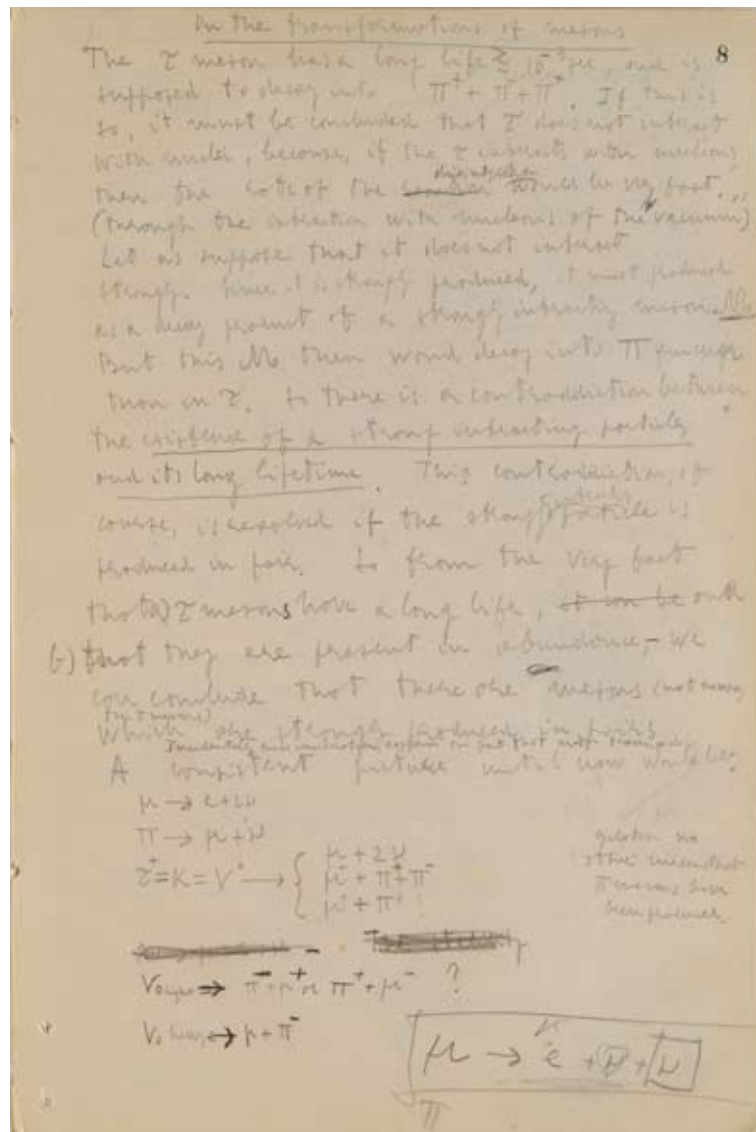 On the transformations of mesons
8
The τ meson has a long life ≳ 10⁻⁹ sec, and is
supposed to decay into π⁺ + π⁻ + π⁺. If this is
so, it must be concluded that τ does not interact
with nuclei, because, if the τ interacts with nucleons
then the rate of the disintegration would be very fast.
(through the interaction with nucleons of the vacuum)
Let us suppose that it does not interact
strongly. Since it is strongly produced, it must produced
as a decay product of a strongly interacting meson M₀
But this M₀ then would decay into π quicker
than in τ. So there is a contraddiction between
the existence of a strong interacting particles
and its long lifetime. This contraddiction, of
course, is resolved if the strong particle is
produced in pair. So from the very fact
that a) τ mesons have a long life, it can be and
b) that they are present in abundance, - we
can conclude that there are mesons (not
which are strongly produced in pairs
A consistent picture until now would be:
μ → e + 2ν
π → μ + ν
τ⁺ = K = V⁺ → { μ + 2ν
μ + π⁺ + π⁻
μ + π⁰
other than
π mesons have
been produced.
V₀ → π⁻ + μ⁺ or π⁺ + μ⁻ ?
V₀ → p + π⁻
μ → e + ν + ν
π